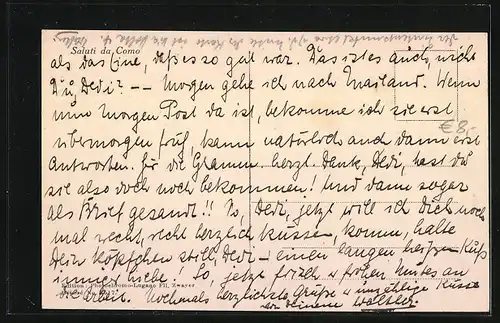 Saluti da Como
als das Eine, daß es so gut war. Das ist es auch, nicht
Du, Dedi? —— Morgen gehe ich nach Mailand. Wenn
nun morgen Post da ist, bekomme ich sie erst
€8,-
übermorgen früh, kann natürlich auch dann erst
antworten. Für die herzl. Dank, Dedi, hast du
sie also doch noch bekommen! Und dann sogar
als Brief gesandt!! So, Dedi, jetzt will ich Dich noch
mal recht, recht herzlich küssen, komm, halte
Dein Köpfchen still, Dedi – einen langen, heißen Kuß
immer liebe! So, jetzt frisch u frohen Mutes an
Edition: Photoedromo-Lugano Fil. Zwayer
die Arbeit. Nochmals herzlichste Grüße u unzählige Küsse
von Deinem